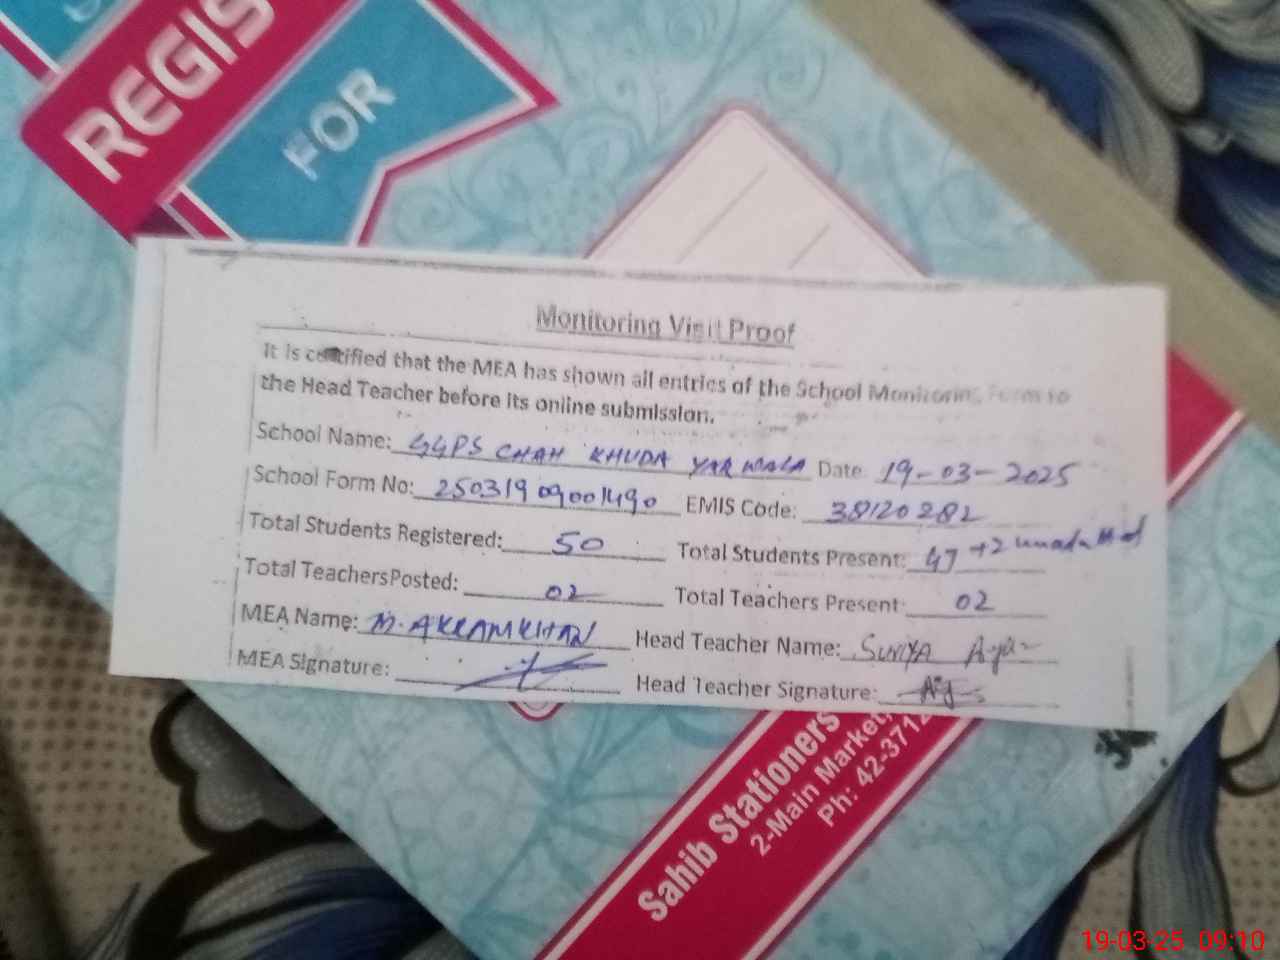 REGIS
FOR
Monitoring Visit Proof
It is certified that the MEA has shown all entries of the School Monitoring Form to
the Head Teacher before its online submission.
School Name: GGPS CHAH KHUDA YAR WALA Date: 19-03-2025
School Form No: 25031909001490 EMIS Code: 38120282
Total Students Registered: 50 Total Students Present: 47 +2
Total TeachersPosted: 02 Total Teachers Present: 02
MEA Name: M. AKRAM KHAN Head Teacher Name: SUNIYA
MEA Signature: Head Teacher Signature:
Sahib Stationers
2-Main Market,
Ph: 42-3712
19-03-25 09:10